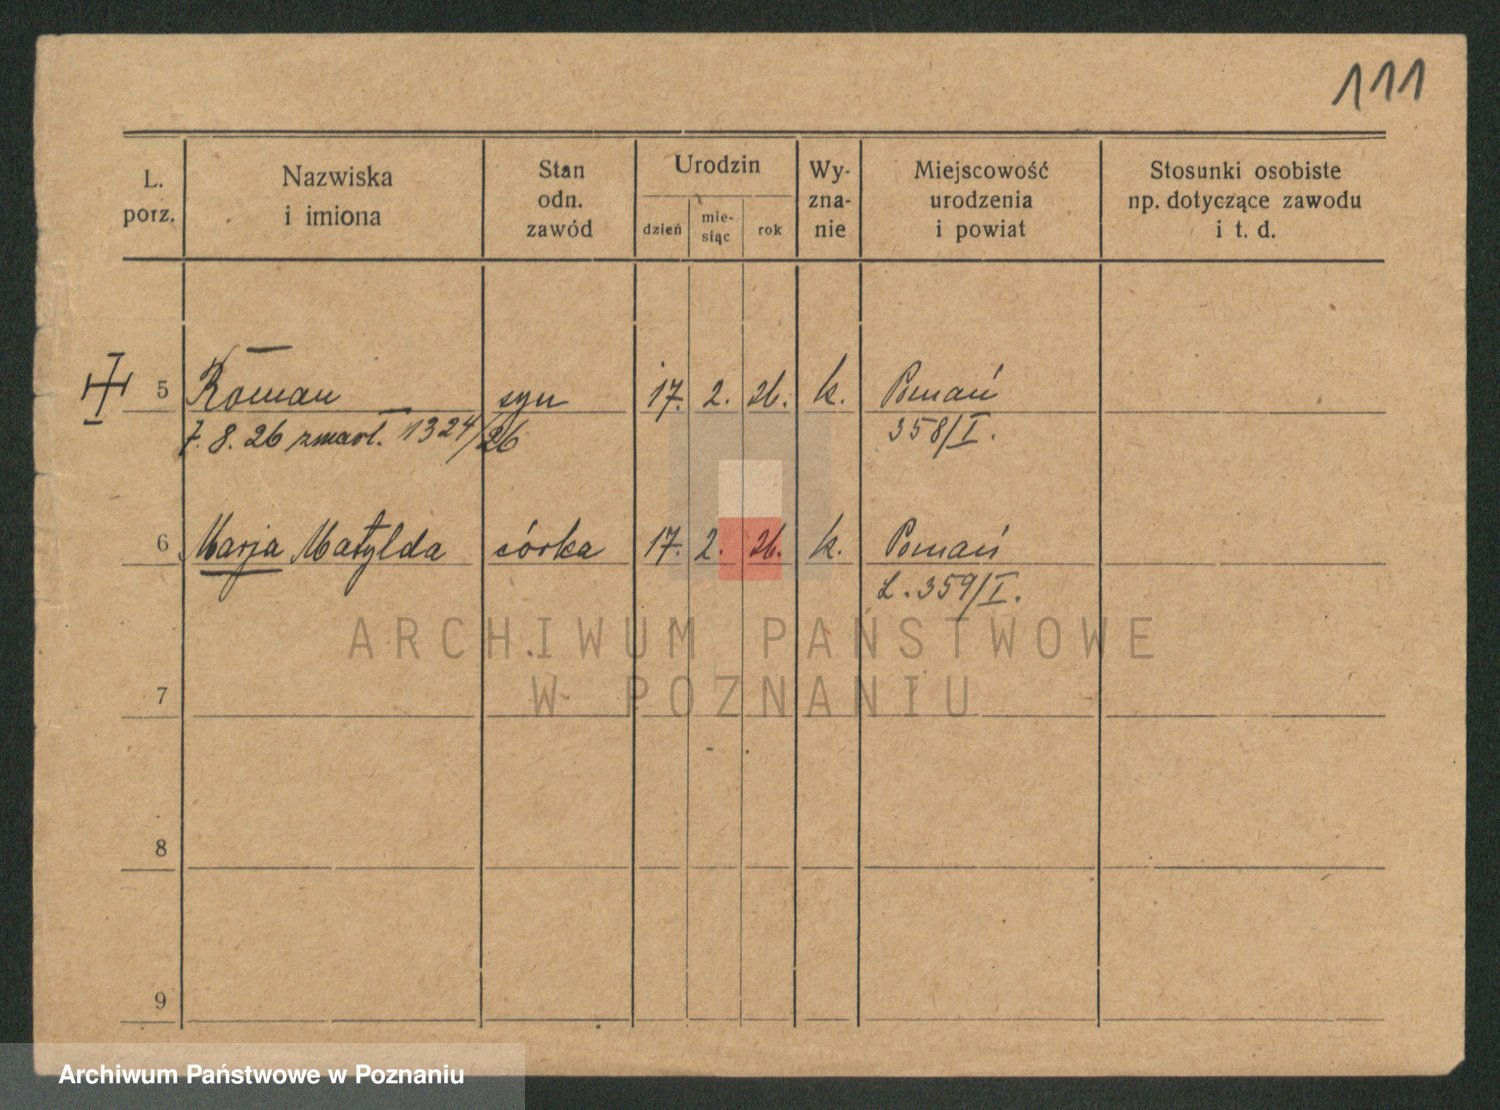 111
L. porz.
Nazwiska i imiona
Stan odn. zawód
Urodzin
dzień
mie-siąc
rok
Wy-zna-nie
Miejscowość urodzenia i powiat
Stosunki osobiste np. dotyczące zawodu i t. d.
5 Roman syn 17. 2. 26. k. Poznań
7. 8. 26 zmarł. 1324/26 358/I.
6 Marja Matylda córka 17. 2. 26. k. Poznań
L. 359/I.
ARCHIWUM PAŃSTWOWE
W POZNANIU
7
8
9
Archiwum Państwowe w Poznaniu